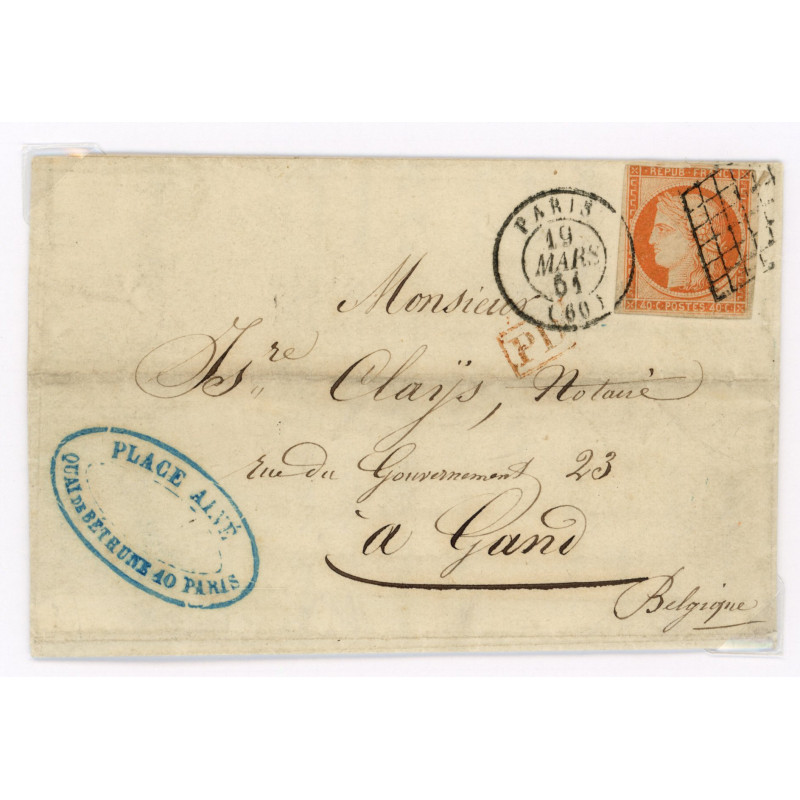 REPUB. FRANC
40 C. POSTES 40 C.
PARIS
19
MARS
51
(60)
PD
Monsieur
Isre Claÿs, Notaire
rue du Gouvernement 23
à Gand
Belgique
PLACE AINÉ
QUAI DE BÉTHUNE 10 PARIS